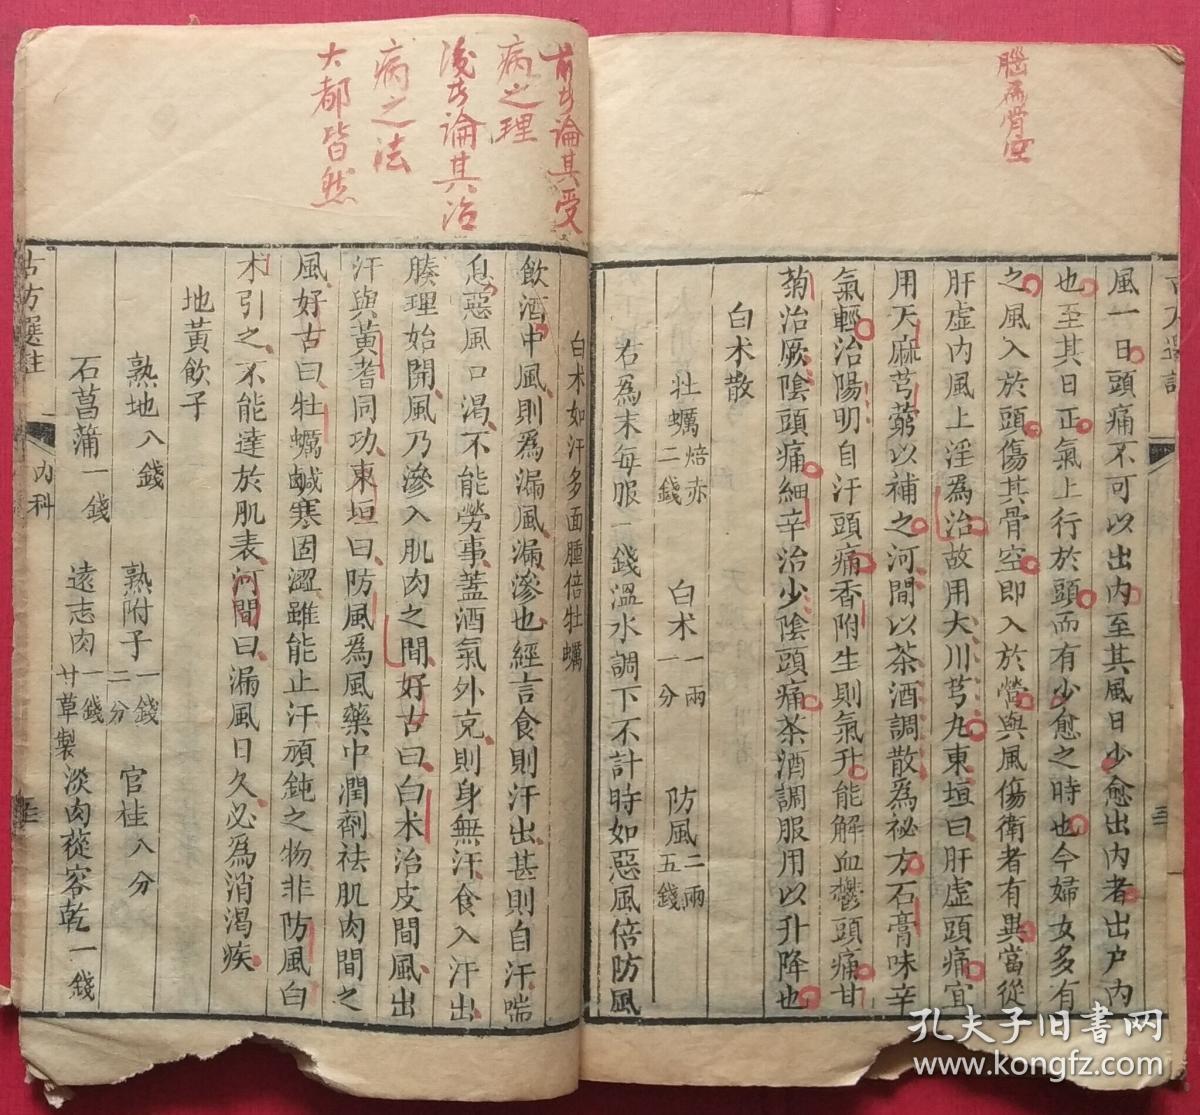 腦為骨空
風一日頭痛不可以出内至其風日少愈出内者出户内
也至其日正氣上行於頭而有少愈之時也今婦女多有
之風入於頭傷其骨空即入於營與風傷衛者有異當從
肝虚内風上淫為治故用大川芎丸東垣曰肝虚頭痛宜
用天麻芎藭以補之河間以茶酒調散為祕方石膏味辛
氣輕治陽明自汗頭痛香附生則氣升能解血鬱頭痛甘
菊治厥陰頭痛細辛治少陰頭痛茶酒調服用以升降也
白术散
牡蠣焙赤二錢 白术一兩一分 防風二兩五錢
右為末每服一錢溫水調下不計時如惡風倍防風
前半論其受
病之理
後半論其治
病之法
大都皆然
白术如汗多面腫倍牡蠣
飲酒中風則為漏風漏滲也經言食則汗出甚則自汗喘
息惡風口渴不能勞事蓋酒氣外充則身無汗食入汗出
腠理始開風乃滲入肌肉之間好古曰白术治皮間風出
汗與黄耆同功東垣曰防風為風藥中潤劑祛肌肉間之
風好古曰牡蠣鹹寒固澀雖能止汗頑鈍之物非防風白
术引之不能達於肌表河間曰漏風日久必為消渴疾
地黄飲子
熟地八錢 熟附子一錢二分 官桂八分
石菖蒲一錢 遠志肉一錢甘草製 淡肉蓯容乾一錢
古方選註
内科
孔夫子旧书网
www.kongfz.com